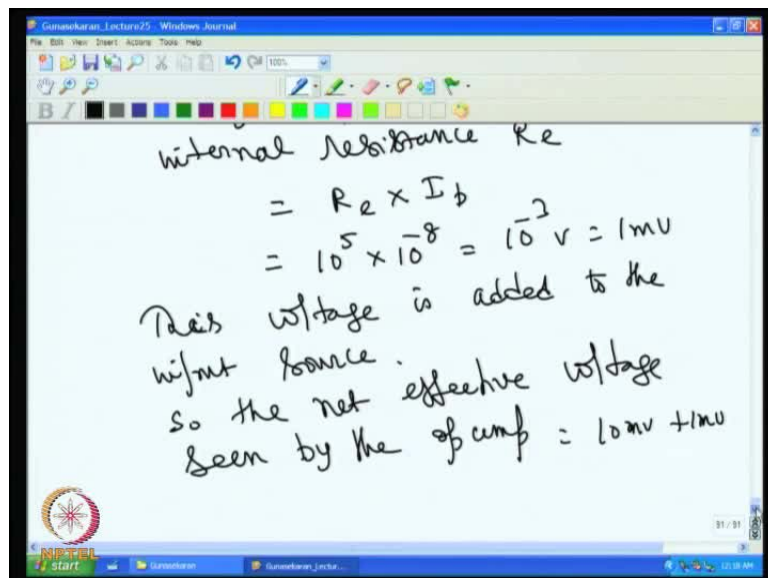 Gunasekaran_Lecture25 - Windows Journal
File Edit View Insert Actions Tools Help
100%
B I
internal resistance Re
= Re × Ib
= 10^5 × 10^-8 = 10^-3 V = 1mV
This voltage is added to the
input source.
So the net effective voltage
seen by the opamp = 10mV + 1mV
91 / 91
NPTEL
start Gunasekaran Gunasekaran_Lectur... 12:18 AM